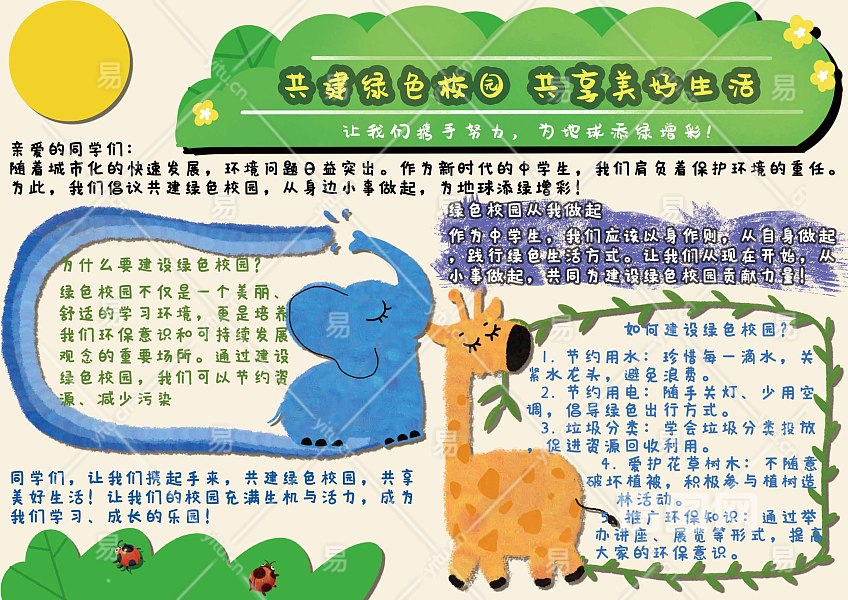 共建绿色校园 共享美好生活
让我们携手努力，为地球添绿增彩！
亲爱的同学们：
随着城市化的快速发展，环境问题日益突出。作为新时代的中学生，我们肩负着保护环境的重任。
为此，我们倡议共建绿色校园，从身边小事做起，为地球添绿增彩！
为什么要建设绿色校园？
绿色校园不仅是一个美丽、
舒适的学习环境，更是培养
我们环保意识和可持续发展
观念的重要场所。通过建设
绿色校园，我们可以节约资
源、减少污染
同学们，让我们携起手来，共建绿色校园，共享
美好生活！让我们的校园充满生机与活力，成为
我们学习、成长的乐园！
绿色校园从我做起
作为中学生，我们应该以身作则，从自身做起
，践行绿色生活方式。让我们从现在开始，从
小事做起，共同为建设绿色校园贡献力量！
如何建设绿色校园？
1. 节约用水：珍惜每一滴水，关
紧水龙头，避免浪费。
2. 节约用电：随手关灯、少用空
调，倡导绿色出行方式。
3. 垃圾分类：学会垃圾分类投放
，促进资源回收利用。
4. 爱护花草树木：不随意
破坏植被，积极参与植树造
林活动。
5. 推广环保知识：通过举
办讲座、展览等形式，提高
大家的环保意识。